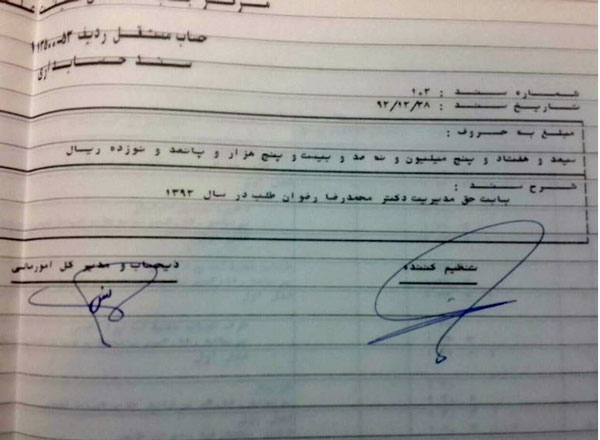 مرکز
حساب مستقل ردیف
سند حسابداری
شماره سند : ۱۰۲
تاریخ سند : ۹۲/۱۲/۲۸
مبلغ به حروف :
سیصد و هفتاد و پنج میلیون و نه صد و بیست و پنج هزار و پانصد و نوزده ریال
شرح سند :
بابت حق مدیریت دکتر محمدرضا رضوان طلب در سال ۱۳۹۲
تنظیم کننده
ذیحساب و مدیر کل امورمالی